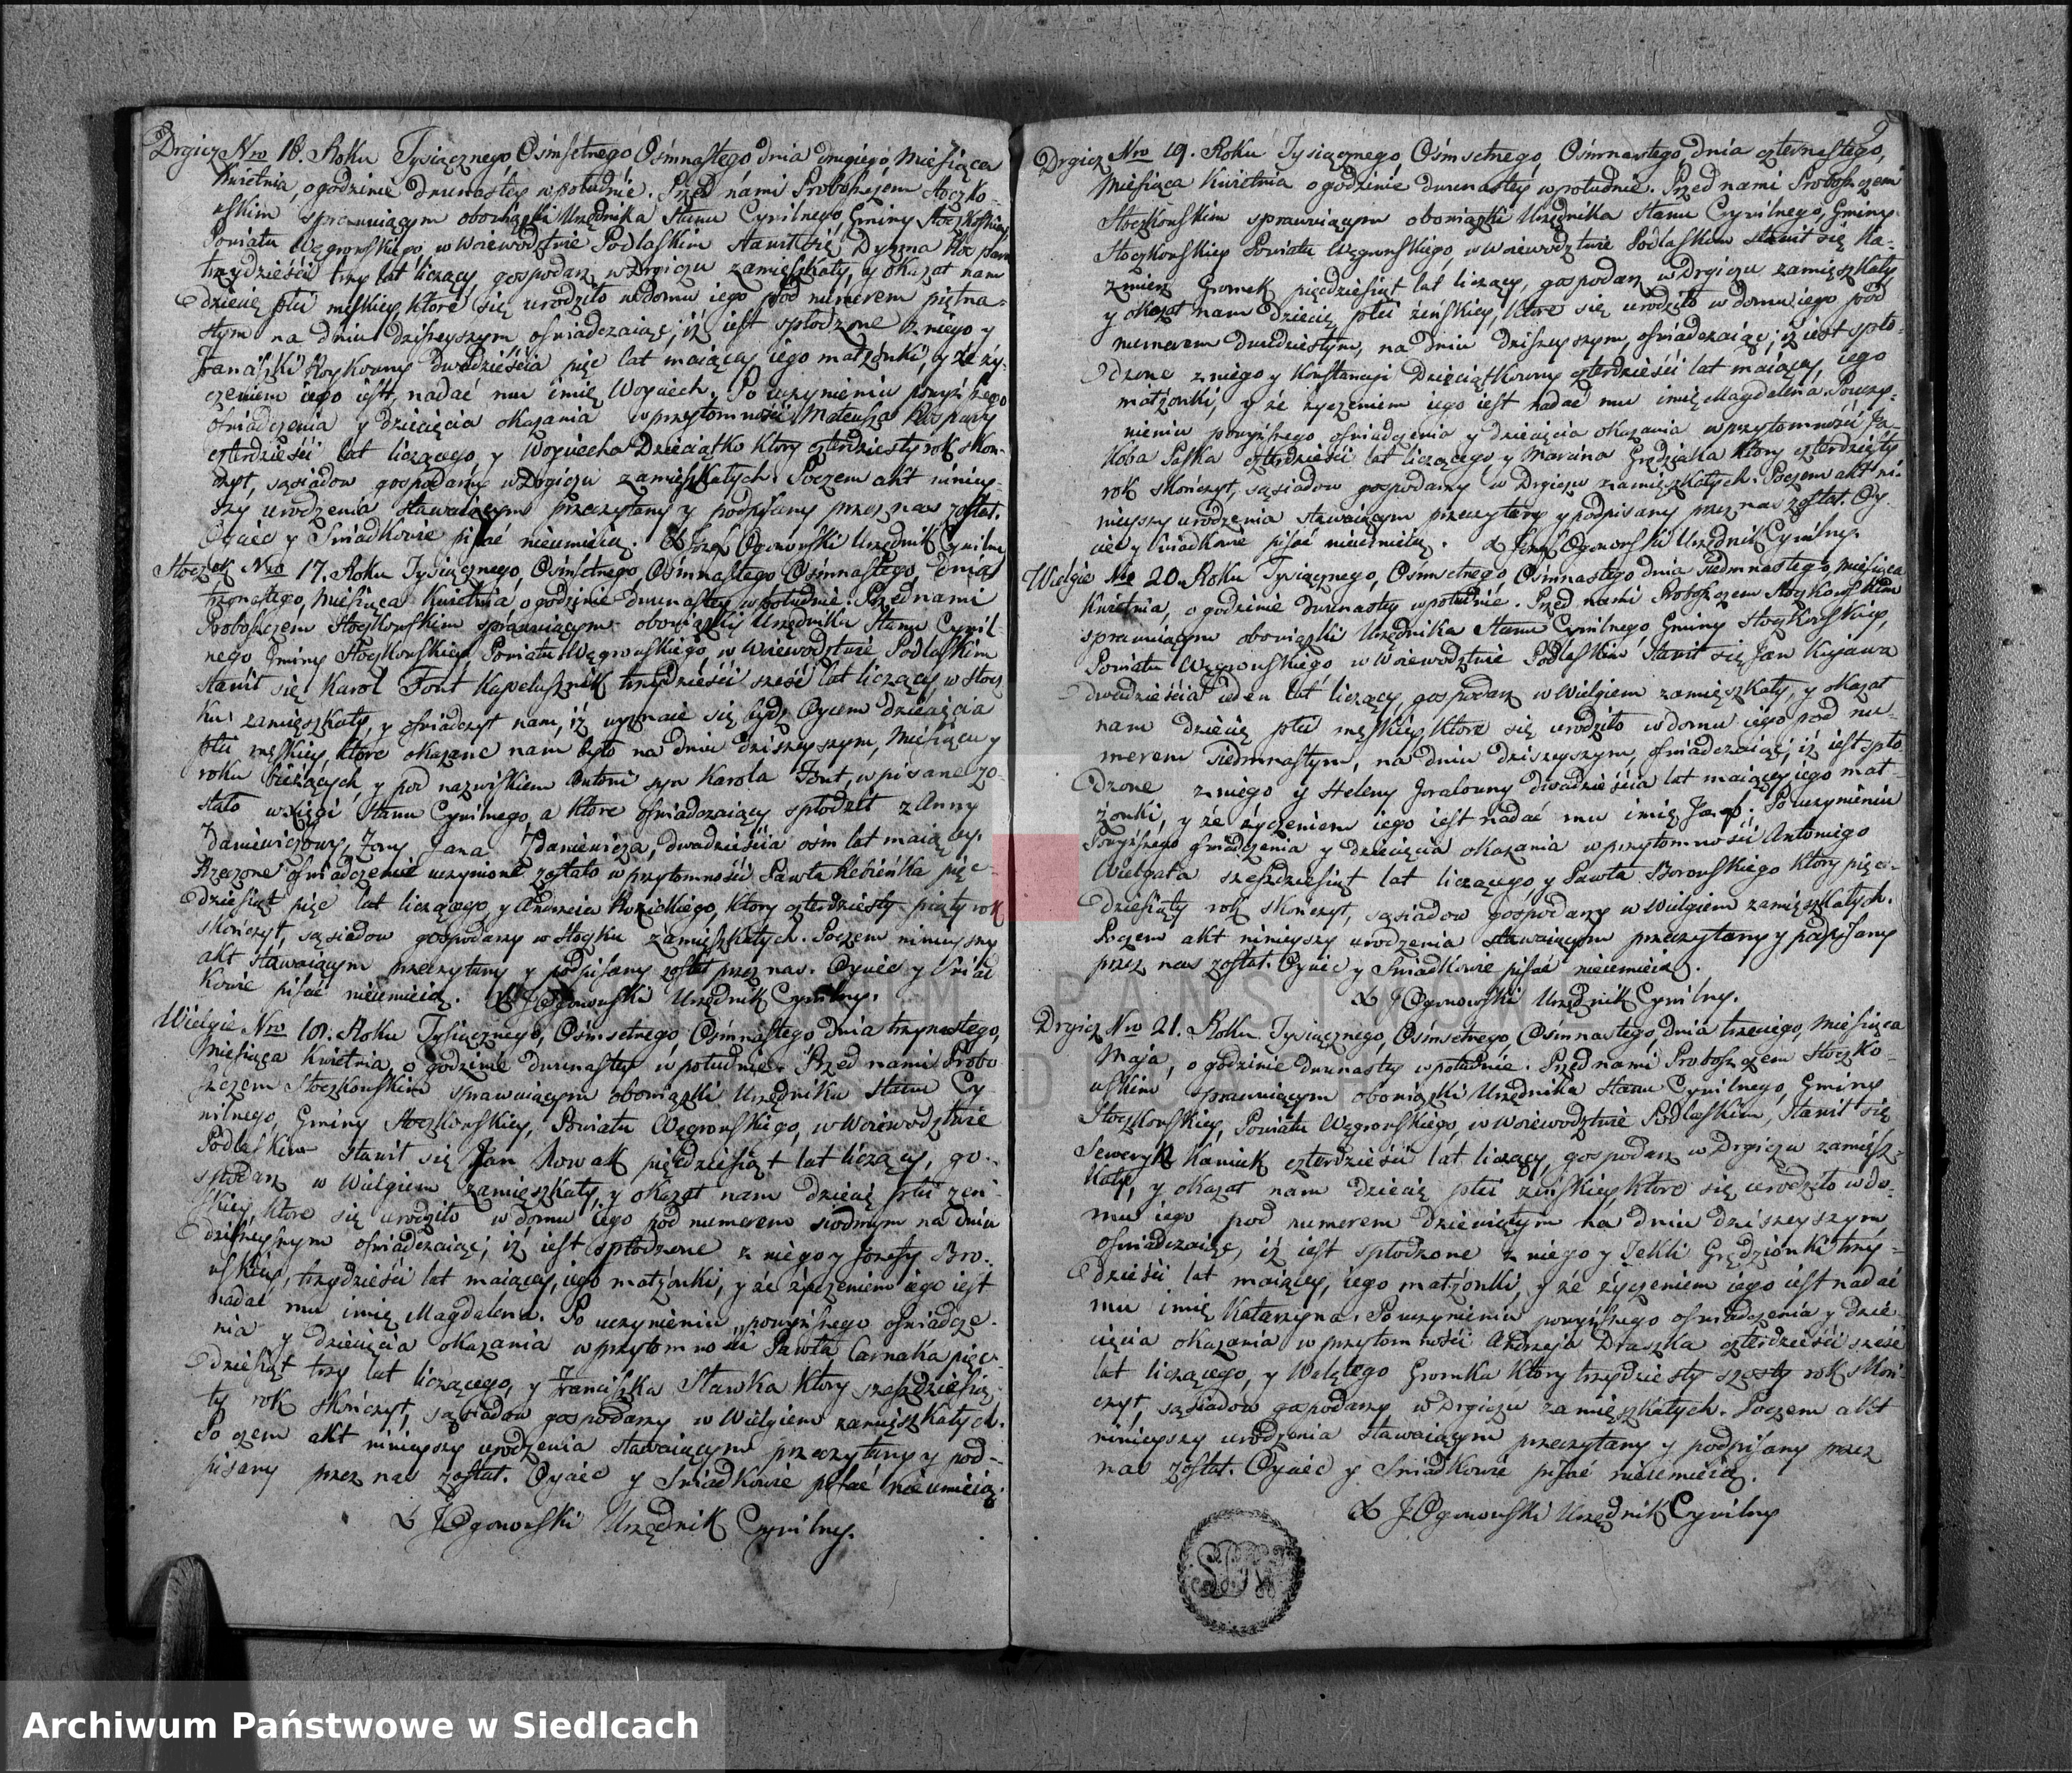 Drgicz Nro 18. Roku Tysiącznego Osimsetnego Osimnastego dnia drugiego, Miesiąca
Kwietnia, o godzinie dwunastey w południe. Przed nami Proboszczem Stoczko-
wskim sprawuiącym obowiązki Urzędnika Stanu Cywilnego Gminy Stoczkoskiey
Powiatu Węgrowskiego, w Woiewodztwie Podlaskim stawił się Dyzma
trzydzieści trzy lat liczący, gospodarz w Drgiczu zamięszkały, y okazał nam
dziecię płci męskiey, które się urodziło w domu iego pod numerem piętna-
stym na dniu dzisieyszym oświadczaiąc, iż iest spłodzone z niego y
Franciszki dwadzieścia pięć lat maiącey iego małżonki, y że ży-
czeniem iego iest, nadać mu imię Woyciech. Po uczynieniu powyższego
oświadczenia y dziecięcia okazania w przytomności Mateusza
czterdzieści lat liczącego y Woyciecha Dzieciątko który czterdziesty rok skoń-
czył, sąsiadow gospodarzy w Drgiczu zamięszkałych. Poczem akt niniey-
szy urodzenia stawaiącym przeczytany y podpisany przez nas został.
Oyciec y Swiadkowie pisać nieumieią. X Józef Ogonowski Urzędnik Cywilny
Stoczek Nro 17. Roku Tysiącznego, Osimsetnego, Osimnastego Osimnastego, dnia
trzynastego, Miesiąca Kwietnia, o godzinie dwunastey w południe. Przed nami
Proboszczem Stoczkowskim sprawuiącym obowiązki Urzędnika Stanu Cywil-
nego Gminy Stoczkowskiey, Powiatu Węgrowskiego, w Woiewodztwie Podlaskim
stawił się Karol Font Kapelusznik trzydzieści sześć lat liczący w Stocz
ku zamięszkały, y oświadczył nam, iż uznaie się bydź Oycem dziecięcia
płci męskiey, które okazane nam było na dniu dzisieyszym, Miesiącu y
roku bieżących, y pod nazwiskiem Antoni syn Karola Font, wpisane zo-
stało w Xięgi Stanu Cywilnego, a które oświadczaiący spłodził z Anny
Zdaniewiczowy, Żony Jana Zdaniewicza, dwadzieścia ośm lat maiącey.
Rzeczone oświadczenie uczynione zostało w przytomności Pawła pięć-
dziesiąt pięć lat liczącego, y Andrzeia Kozickiego, który czterdziesty piąty rok
skończył, sąsiadow gospodarzy w Stoczku zamięszkałych. Poczem ninieyszy
akt stawaiącym przeczytany y podpisany został przez nas. Oyciec y Swiad
kowie pisać nieumieią. X J Ogonowski Urzędnik Cywilny.
Wielgie Nro 18. Roku Tysiącznego, Osimsetnego, Osimnastego, dnia trzynastego,
Miesiąca Kwietnia, o godzinie dwunastey w południe. Przed nami Probo
szczem Stoczkowskim sprawuiącym obowiązki Urzędnika Stanu Cy
wilnego, Gminy Stoczkowskiey, Powiatu Węgrowskiego, w Woiewodztwie
Podlaskim stawił się Jan Nowak pięćdziesiąt lat liczący, go-
spodarz w Wielgiem zamięszkały, y okazał nam dziecię płci żeń-
skiey, które się urodziło w domu iego pod numerem siodmym na dniu
dzisieyszym oświadczaiąc, iż iest spłodzone z niego y Jozefy Bro-
wskiey, trzydzieści lat maiącey, iego małżonki, y że życzeniem iego iest
nadać mu imię Magdalena. Po uczynieniu powyższego oświadcze-
nia y dziecięcia okazania w przytomności Pawła Carnaka pięć-
dziesiąt trzy lat liczącego, y Franciszka Sławka który sześćdziesią-
ty rok skończył, sąsiadow gospodarzy w Wielgiem zamięszkałych.
Po czem akt ninieyszy urodzenia stawaiącym przeczytany y pod-
pisany przez nas został. Oyciec y Swiadkowie pisać nieumieią.
X J Ogonowski Urzędnik Cywilny.
9
Drgicz Nro 19. Roku Tysiącznego, Osimsetnego, Osimnastego, dnia czternastego,
Miesiąca Kwietnia o godzinie dwunastey w południe. Przed nami Proboszczem
Stoczkowskim sprawuiącym obowiązki Urzędnika Stanu Cywilnego, Gminy
Stoczkowskiey Powiatu Węgrowskiego, w Woiewodztwie Podlaskim stawił się Ka-
zmierz Gromek pięćdziesiąt lat liczący, gospodarz w Drgiczu zamięszkały
y okazał nam dziecię płci żeńskiey, które się urodziło w domu iego pod
numerem dwudziestym, na dniu dzisieyszym, oświadczaiąc, iż iest spło-
dzone z niego y Konstancyi Dzięciątkowny czterdzieści lat maiącey, iego
małżonki, y że życzeniem iego iest nadać mu imię Magdalena. Po uczy-
nieniu powyższego oświadczenia y dziecięcia okazania w przytomności Ja-
koba Paska czterdzieści lat liczącego, y Marcina Grądziaka który czterdziesty
rok skończył, sąsiadow gospodarzy w Drgiczu zamięszkałych. Poczem akt ni-
nieyszy urodzenia stawaiącym przeczytany y podpisany przez nas został. Oy
ciec y Swiadkowie pisać nieumieią. X Józef Ogonowski Urzędnik Cywilny.
Wielgie Nro 20. Roku Tysiącznego, Osimsetnego, Osimnastego dnia siedmnastego, Miesiąca
Kwietnia, o godzinie dwunastey w południe. Przed nami Proboszczem Stoczkowskim
sprawuiącym obowiązki Urzędnika Stanu Cywilnego, Gminy Stoczkoskiey,
Powiatu Węgrowskiego w Woiewodztwie Podlaskim stawił się Jan Kujawa
dwadzieścia ieden lat liczący, gospodarz w Wielgiem zamięszkały, y okazał
nam dziecię płci męskiey, które się urodziło w domu iego pod nu-
merem siedmnastym, na dniu dzisieyszym, oświadczaiąc, iż iest spło
dzone z niego y Heleny Goralowny dwadzieścia lat maiącey iego mał-
żonki, y że życzeniem iego iest nadać mu imię Józef. Po uczynieniu
Powyższego oświadczenia y dziecięcia okazania w przytomności Antoniego
Wielgata sześćdziesiąt lat liczącego, y Pawła Borowskiego który pięć-
dziesiąty rok skończył, sąsiadow gospodarzy w Wielgiem zamięszkałych.
Poczem akt ninieyszy urodzenia stawaiącym przeczytany y podpisany
przez nas został. Oyciec y Swiadkowie pisać nieumieią.
X J Ogonowski Urzędnik Cywilny.
Drgicz Nro 21. Roku Tysiącznego, Osimsetnego, Osimnastego, dnia trzeciego, Miesiąca
Maja, o godzinie dwunastey w południe. Przed nami Proboszczem Stoczko-
wskim sprawuiącym obowiązki Urzędnika Stanu Cywilnego, Gminy
Stoczkowskiey, Powiatu Węgrowskiego, w Woiewodztwie Podlaskim, stawił się
Seweryn Kaniuk czterdzieści lat liczący, gospodarz w Drgiczu zamięsz-
kały, y okazał nam dziecię płci żeńskiey które się urodziło w do-
mu iego pod numerem dziewiątym na dniu dzisieyszym
oświadczaiąc, iż iest spłodzone z niego y Tekli Grędzionki trzy-
dzieści lat maiącey, iego małżonki, y że życzeniem iego iest nadać
mu imię Katarzyna. Po uczynieniu powyższego oświadczenia y dzie
cięcia okazania w przytomności Andrzeja Draszka czterdzieści sześć
lat liczącego, y Walętego Gromka który trzydziesty szosty rok skoń-
czył, sąsiadow gospodarzy w Drgiczu zamięszkałych. Poczem akt
ninieyszy urodzenia stawaiącym przeczytany y podpisany przez
nas został. Oyciec y Swiadkowie pisać nieumieią.
X J Ogonowski Urzędnik Cywilny
Archiwum Państwowe w Siedlcach